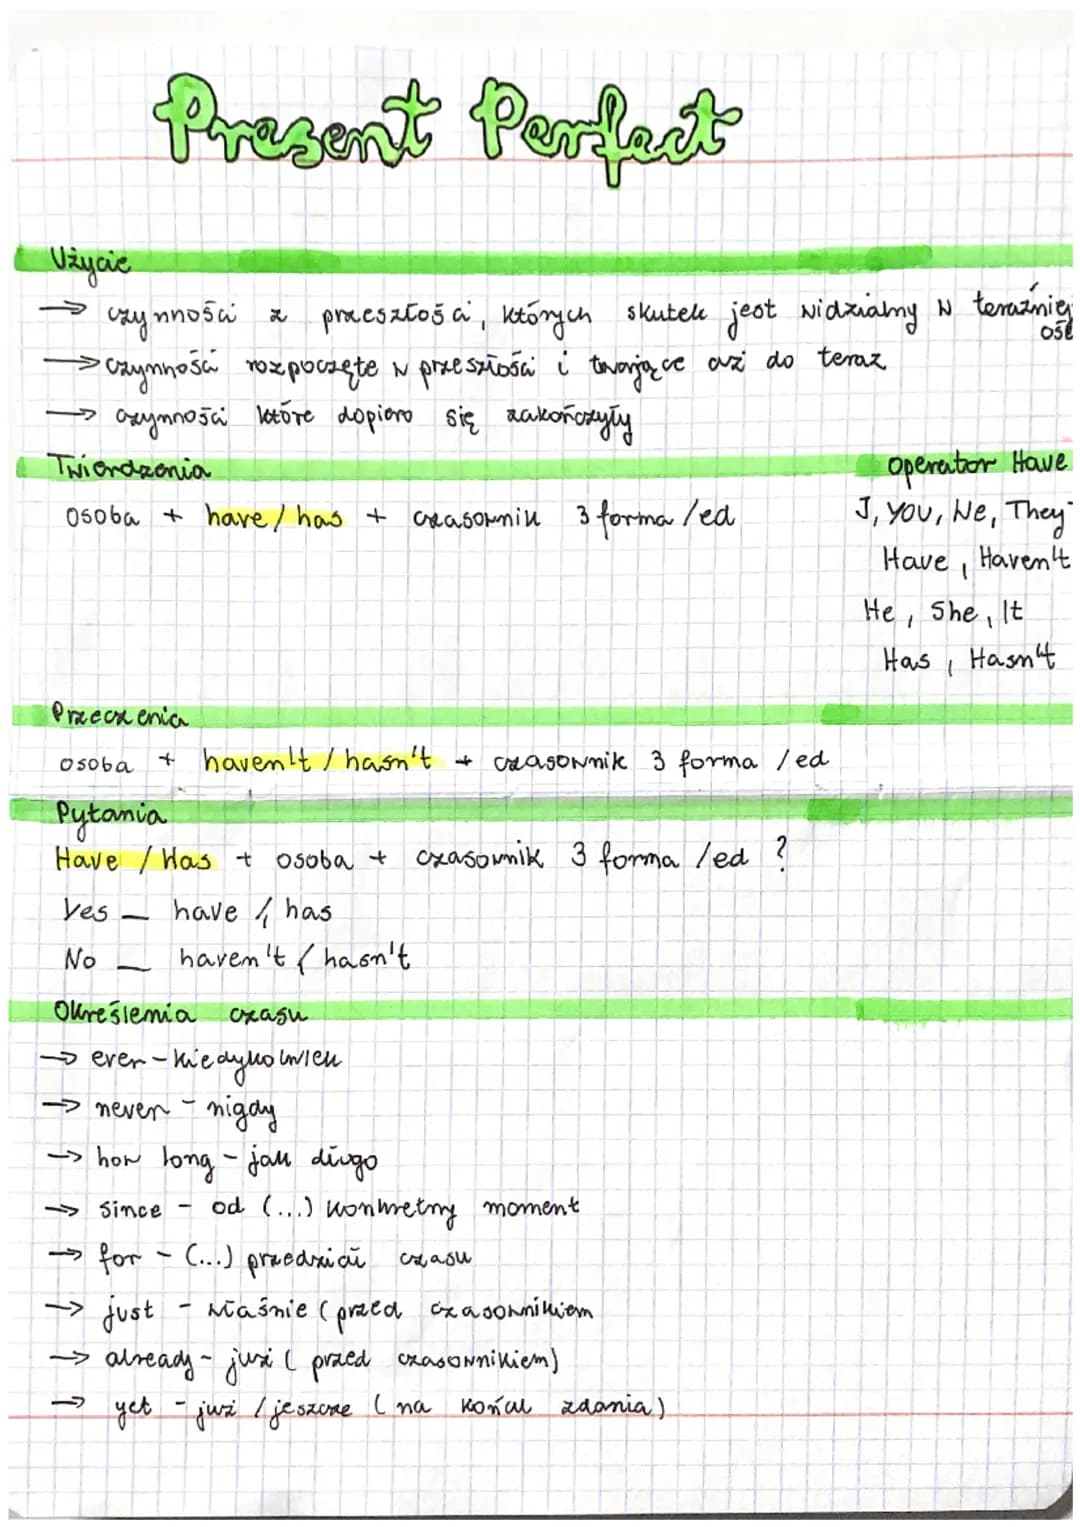 Present Perfect
Użycie
→ czynności z przeszłości, których skutek jest widzialny w teraźniej
ość
→ czynności rozpoczęte w przeszłości i trwające aż do teraz
→ czynności które dopiero się zakończyły
Twierdzenia
osoba + have / has + czasownik 3 forma /ed
operator Have
I, You, We, They
Have, Haven't
He, She, It
Has, Hasn't
Przeczenia
osoba + haven't / hasn't + czasownik 3 forma /ed
Pytania
Have / Has + osoba + czasownik 3 forma /ed ?
Yes _ have / has
No _ haven't / hasn't
Określenia czasu
→ ever - kiedykolwiek
→ never - nigdy
→ how long - jak długo
→ since - od (...) konkretny moment
→ for - (...) przedział czasu
→ just - właśnie (przed czasownikiem
→ already - już ( przed czasownikiem)
→ yet - już / jeszcze ( na końcu zdania)